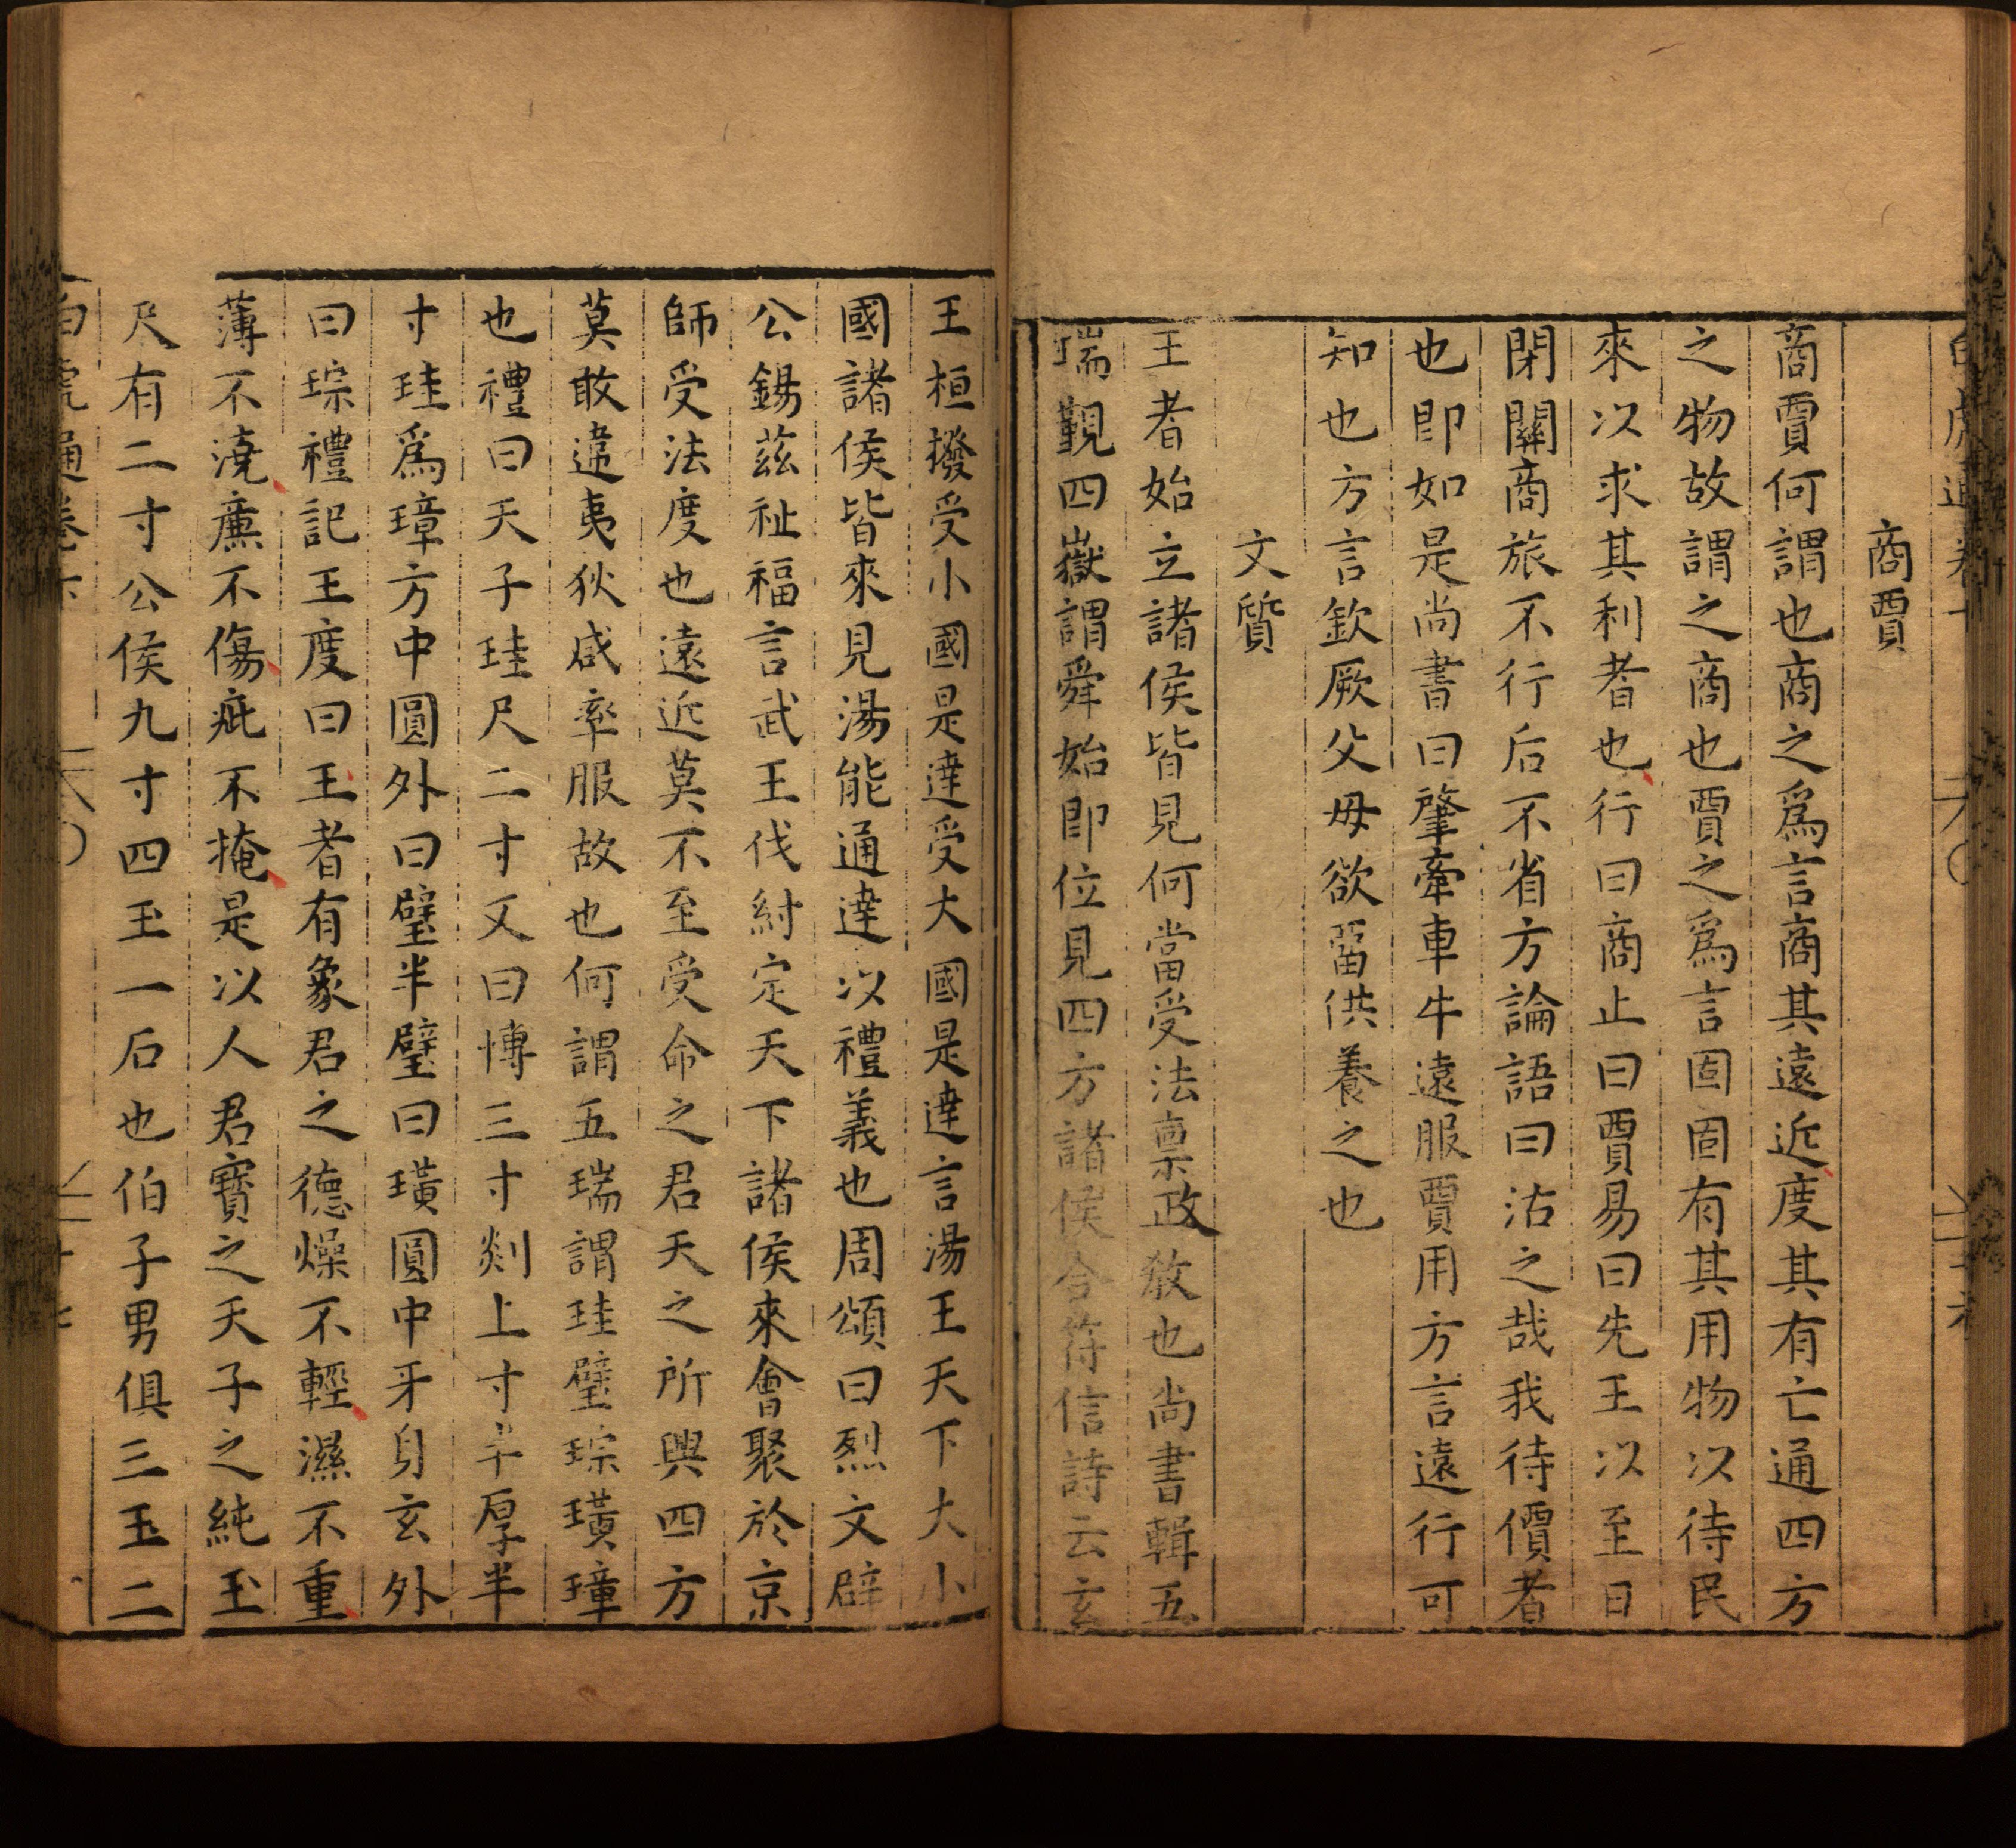 商賈
商賈何謂也商之爲言商其遠近度其有亡通四方
之物故謂之商也賈之爲言固固有其用物以待民
來以求其利者也行曰商止曰賈易曰先王以至日
閉關商旅不行后不省方論語曰沽之哉我待價者
也即如是尚書曰肇牽車牛遠服賈用方言遠行可
知也方言欽厥父母欲留供養之也
文質
王者始立諸侯皆見何當受法稟政教也尚書輯五
瑞觀四嶽謂舜始即位見四方諸侯合符信詩云玄
王桓撥受小國是達受大國是達言湯王天下大小
國諸侯皆來見湯能通達以禮義也周頌曰烈文辟
公錫茲祉福言武王伐紂定天下諸侯來會聚於京
師受法度也遠近莫不至受命之君天之所興四方
莫敢違夷狄咸率服故也何謂五瑞謂珪璧琮璜璋
也禮曰天子珪尺二寸又曰博三寸剡上寸半厚半
寸珪爲璋方中圓外曰璧半璧曰璜圓中牙身玄外
曰琮禮記王度曰王者有象君之德燥不輕濕不重
薄不澆廉不傷疵不掩是以人君寶之天子之純玉
尺有二寸公侯九寸四玉一石也伯子男俱三玉二